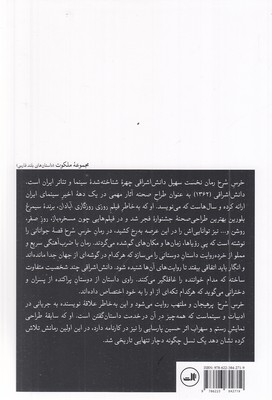 مجموعهٔ ملکوت (داستان‌های بلند فارسی)
خرسِ سُرخ رمان نخست سهیل دانش‌اشراقی چهرهٔ شناخته‌شدهٔ سینما و تئاتر ایران است.
دانش‌اشراقی (۱۳۶۲) به عنوان طراح صحنه آثار مهمی در یک دههٔ اخیرِ سینمای ایران
ارائه کرده و سال‌هاست که می‌نویسد. او که به‌خاطر فیلم روزی روزگاری آبادان، برندهٔ سیمرغ
بلورین بهترین طراحی‌صحنهٔ جشنوارهٔ فجر شد و در فیلم‌هایی چون مسخره‌باز، روز صفر،
روشن و... نیز توانایی‌اش را در این عرصه به‌رخ کشید، در رمانِ خرسِ سُرخ قصهٔ جوانانی را
نوشته است که پی رؤیاها، زمان‌ها و مکان‌های گم‌شده می‌گردند. رمان با ضرب‌آهنگی سریع و
مملو از خرده‌روایت داستانِ دوستانی را می‌سازد که هرکدام در گوشه‌ای از جهان جدا مانده‌اند
و انگار باید اتفاقی بیفتد تا روایت‌های آن‌ها شنیده شود. دانش‌اشراقی چند شخصیتِ متفاوت
را مقابل هم قرار می‌دهد. راوی داستان از دوستانِ پراکنده از پسران و
دخترانی می‌گوید که هرکدام تکه‌ای از او را به خود اختصاص داده‌اند.
خرسِ سُرخ پرهیجان و ملتهب روایت می‌شود و این به‌خاطر علاقهٔ نویسنده به جریانی در
ادبیات و سینماست که همه‌چیز در آن در خدمت داستان‌گفتن است. او که سابقهٔ طراحی
نمایش رستم و سهراب اثر حسین پارسایی را نیز در کارنامه دارد، در این اولین رمانش تلاش
کرده نشان دهد یک نسل چگونه دچار تنهایی تاریخی شد.
ISBN: 978-622-384-271-9
9 786223 842719